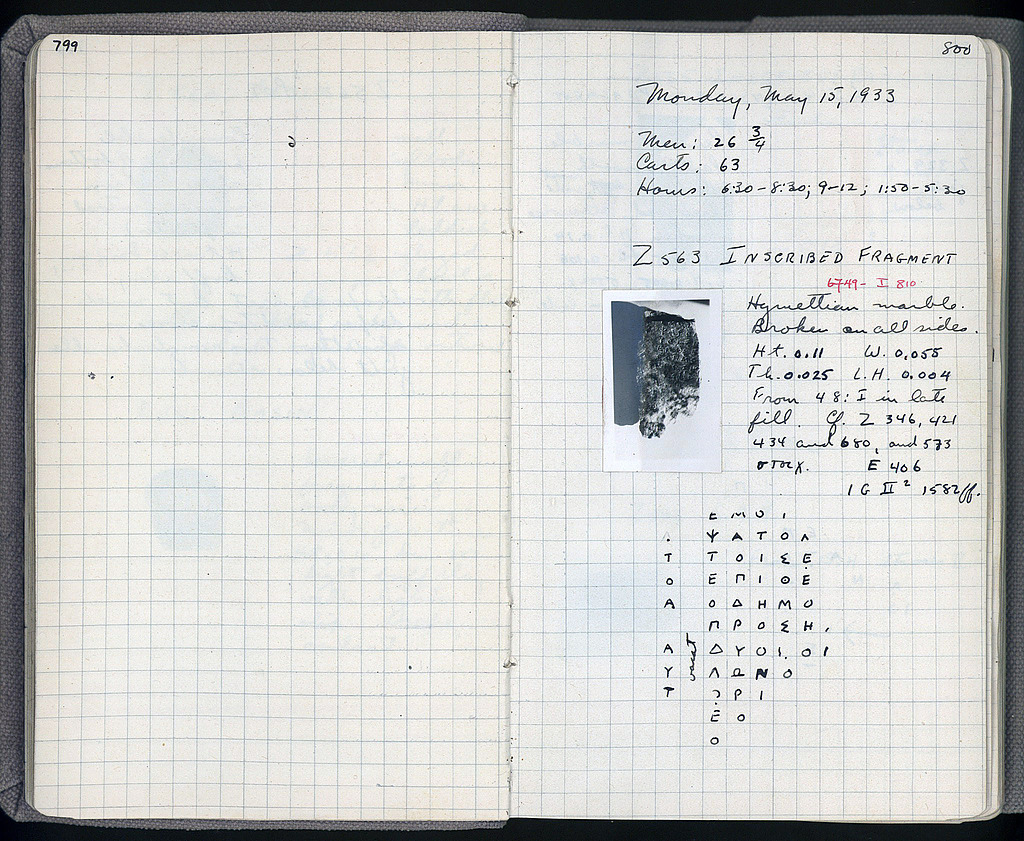 799
800
Monday, May 15, 1933
Men: 26 3/4
Carts: 63
Hours: 6:30-8:30; 9-12; 1:30-5:30
Z 563 INSCRIBED FRAGMENT
6749- I 810
Hymettian marble.
Broken on all sides.
Ht. 0.11 W. 0,055
Th. 0.025 L.H. 0.004
From 48: I in late
fill. Cf. Z 346, 421
434 and 680, and 573
στοιχ. E 406
IG II² 1582ff.
Ε Μ Ο Ι
Ψ Α Τ Ο Λ
Τ Τ Ο Ι Σ Ε
Ο Ε Π Ι Θ Ε
Α Ο Δ Η Μ Ο
Π Ρ Ο Σ Η .
Α vacat Δ Υ Ο Ι . Ο Ι
Υ Λ Ω Ν Ο
Τ Ο Ρ Ι
Ε Ο
Ο